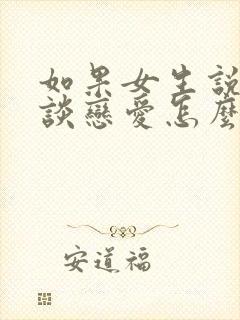 如果女生說
談戀愛怎麼
安道福